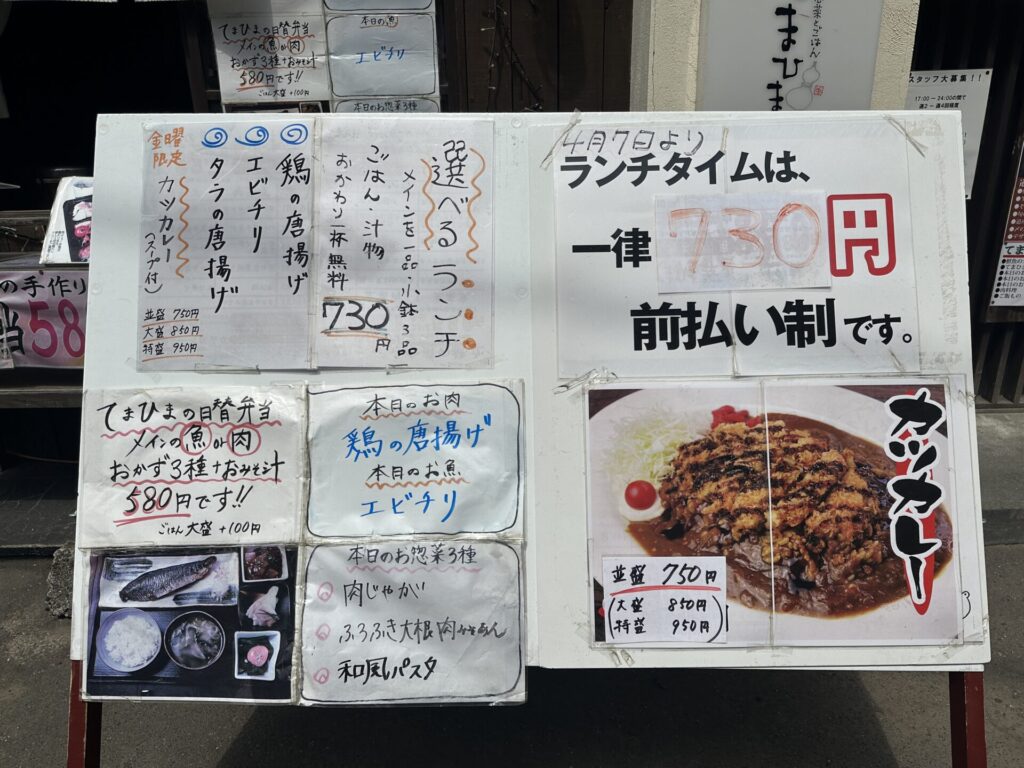 てまひまの日替弁当
メインの魚or肉
おかず3種+おみそ汁
580円です!!
ごはん大盛+100円
本日の魚
エビチリ
本日のお惣菜3種
まひま
スタッフ大募集!!
17:00～24:00の間で
の手作り
当58
選べるランチ
メインを一品・小鉢3品
ごはん・汁物
おかわり一杯無料
730円
鶏の唐揚げ
エビチリ
タラの唐揚げ
金曜限定
カツカレー
(スープ付)
並盛 750円
大盛 850円
特盛 950円
4月7日より
ランチタイムは、
一律730円
前払い制です。
てまひまの日替弁当
メインの魚or肉
おかず3種+おみそ汁
580円です!!
ごはん大盛+100円
本日のお肉
鶏の唐揚げ
本日のお魚
エビチリ
本日のお惣菜3種
肉じゃが
ふろふき大根肉みそあん
和風パスタ
カツカレー
並盛 750円
(大盛 850円)
(特盛 950円)